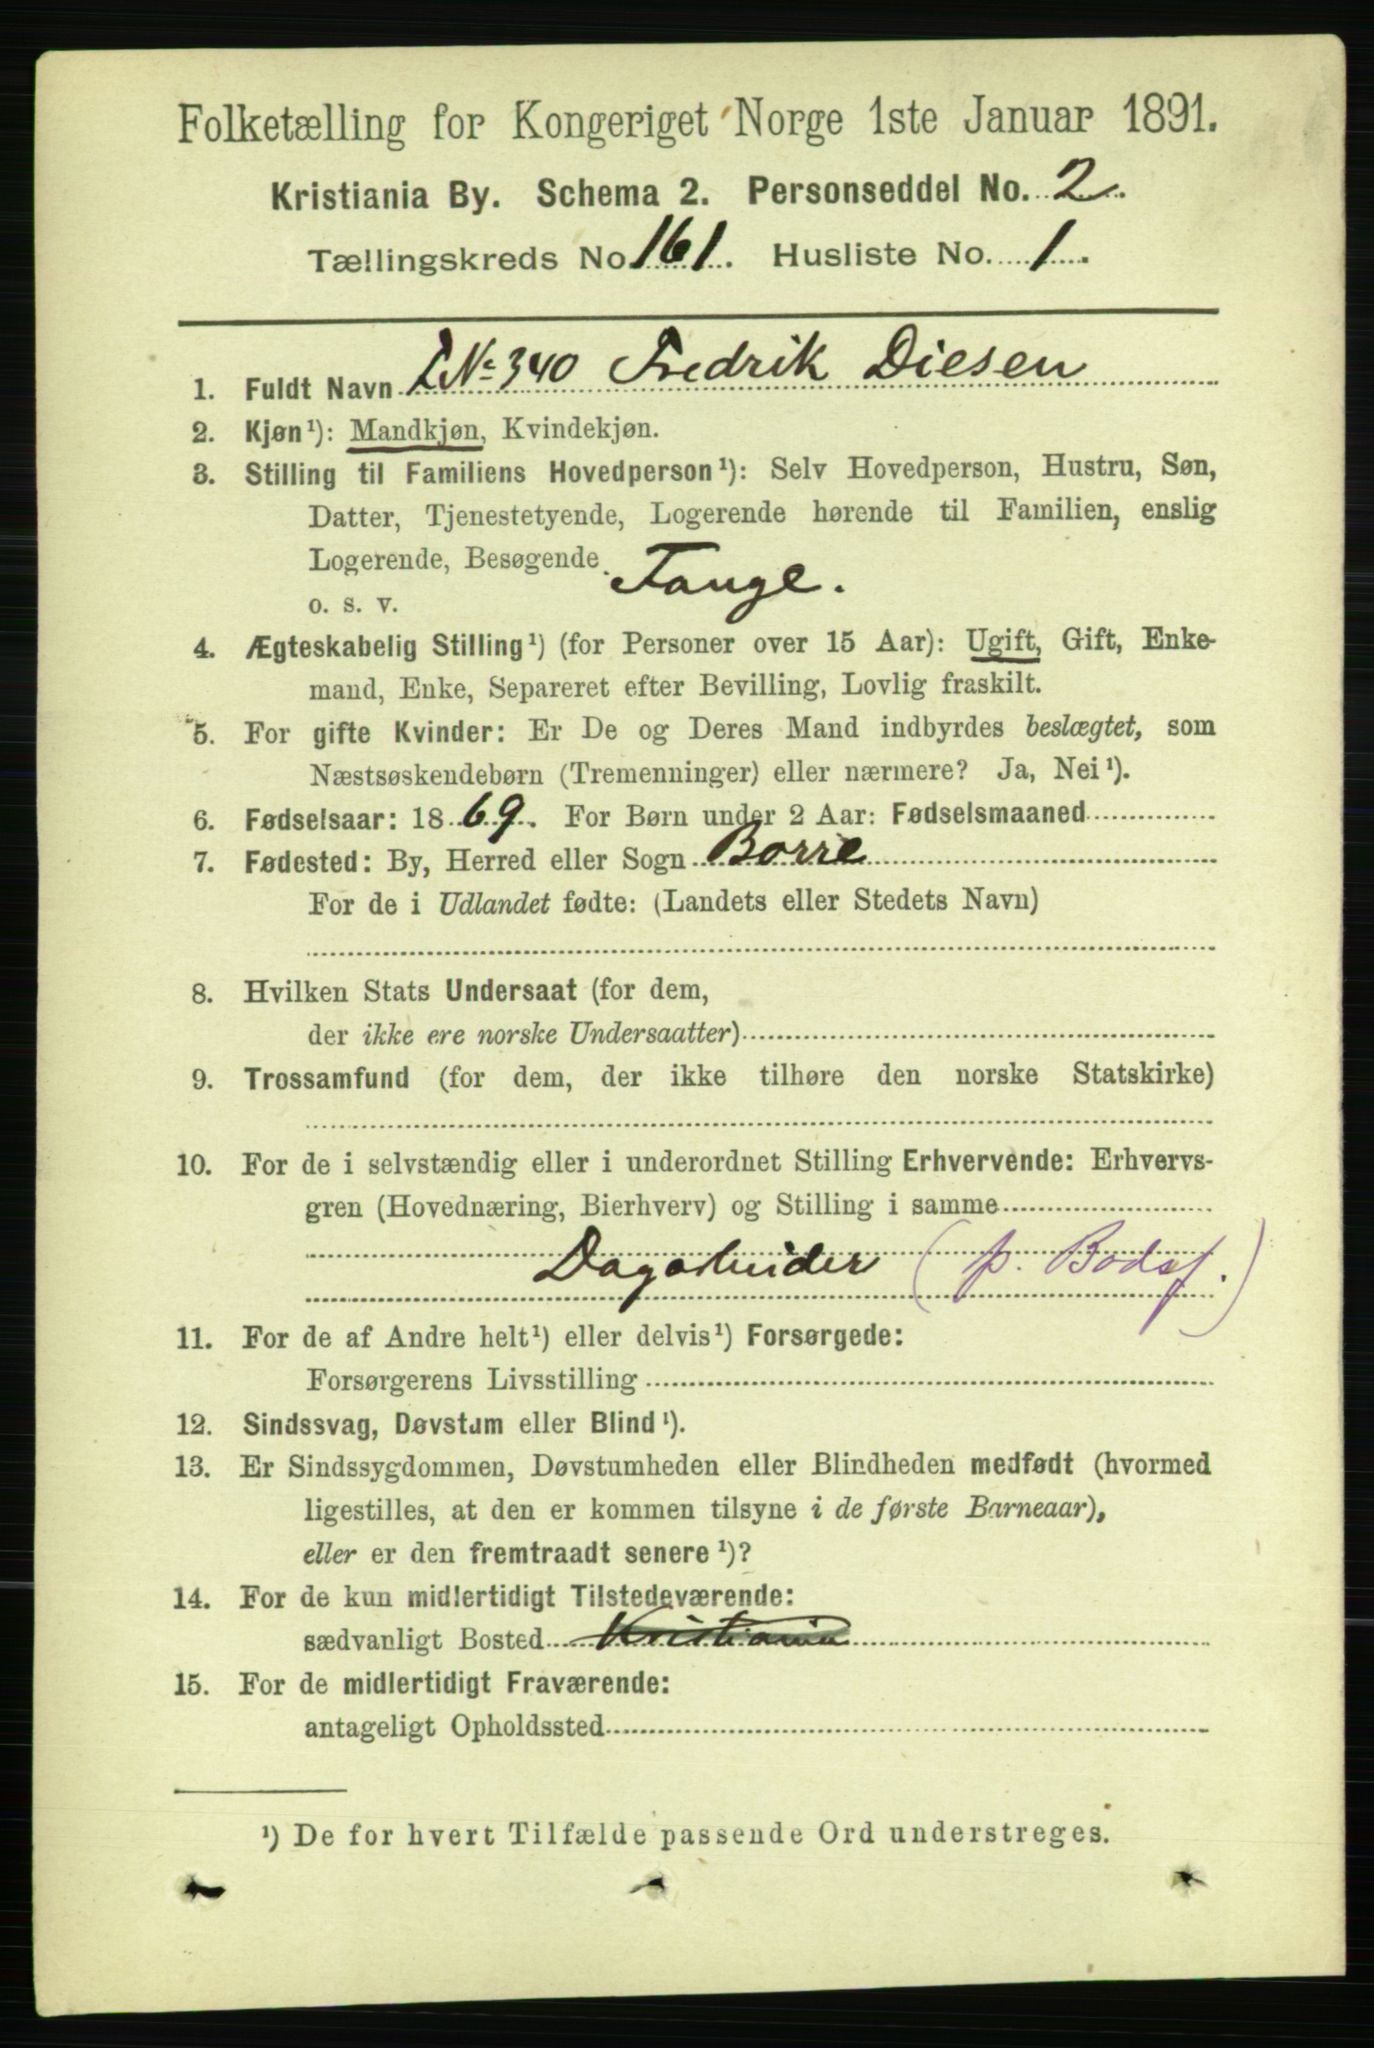 Folketælling for Kongeriget Norge 1ste Januar 1891.
Kristiania By. Schema 2. Personseddel No. 2.
Tællingskreds No 161. Husliste No. 1.
1. Fuldt Navn No 340 Fredrik Diesen
2. Kjøn¹): Mandkjøn, Kvindekjøn.
3. Stilling til Familiens Hovedperson¹): Selv Hovedperson, Hustru, Søn,
Datter, Tjenestetyende, Logerende hørende til Familien, enslig
Logerende, Besøgende
o. s. v. Fange.
4. Ægteskabelig Stilling¹) (for Personer over 15 Aar): Ugift, Gift, Enke-
mand, Enke, Separeret efter Bevilling, Lovlig fraskilt.
5. For gifte Kvinder: Er De og Deres Mand indbyrdes beslægtet, som
Næstsøskendebørn (Tremenninger) eller nærmere? Ja, Nei¹).
6. Fødselsaar: 1869. For Børn under 2 Aar: Fødselsmaaned
7. Fødested: By, Herred eller Sogn Borre
For de i Udlandet fødte: (Landets eller Stedets Navn)
8. Hvilken Stats Undersaat (for dem,
der ikke ere norske Undersaatter)
9. Trossamfund (for dem, der ikke tilhøre den norske Statskirke)
10. For de i selvstændig eller i underordnet Stilling Erhvervende: Erhvervs-
gren (Hovednæring, Bierhverv) og Stilling i samme
Dagarbeider (p. Bodsf.)
11. For de af Andre helt¹) eller delvis¹) Forsørgede:
Forsørgerens Livsstilling
12. Sindssvag, Døvstum eller Blind¹).
13. Er Sindssygdommen, Døvstumheden eller Blindheden medfødt (hvormed
ligestilles, at den er kommen tilsyne i de første Barneaar),
eller er den fremtraadt senere¹)?
14. For de kun midlertidigt Tilstedeværende:
sædvanligt Bosted Kristiania
15. For de midlertidigt Fraværende:
antageligt Opholdssted
¹) De for hvert Tilfælde passende Ord understreges.